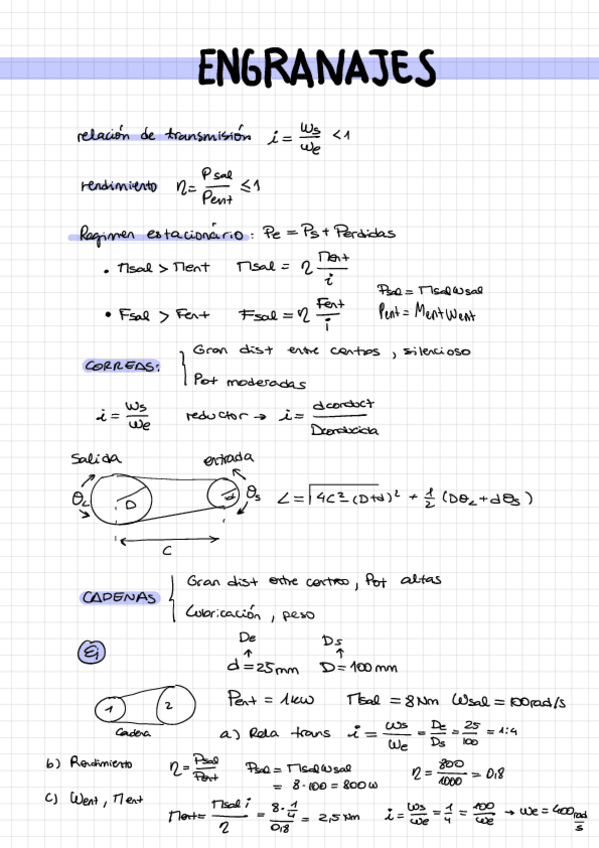 ENGRANAJES
relación de transmisión i = ωs/ωe < 1
rendimiento η = Psal/Pent ≤ 1
Regimen estacionário: Pe = Ps + Perdidas
• Msal > Ment Msal = η Ment/i
Psal = Msal ωsal
• Fsal > Fent Fsal = η Fent/i Pent = Ment Went
CORREAS: Gran dist entre centros, silencioso
Pot moderadas
i = ωs/ωe reductor → i = dconduct/Dconducida
Salida entrada
θL D d θs L = √4C² - (D+d)² + 1/2 (DθL + dθs)
C
CADENAS Gran dist entre centro, Pot altas
Lubricación, peso
Ej De Ds
d = 25mm D = 100mm
1 2 Pent = 1kw Msal = 8Nm ωsal = 100rad/s
Cadena a) Rela trans i = ωs/ωe = De/Ds = 25/100 = 1:4
b) Rendimiento η = Psal/Pent Psal = Msal ωsal η = 800/1000 = 0,8
= 8·100 = 800w
c) Went, Ment Ment = Msal i/η = 8·1/4/0,8 = 2,5 Nm i = ωs/ωe = 1/4 = 100/ωe → ωe = 400 rad/s